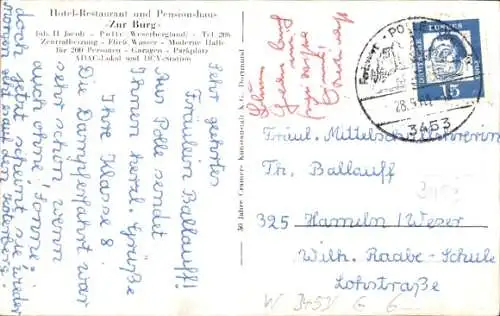 Hotel-Restaurant und Pensionshaus
»Zur Burg«
Inh. H. Jacob - Polle (Weserbergland) - Tel. 206
Zentralheizung - Fließ. Wasser - Moderne Halle
für 200 Personen - Garagen - Parkplatz
ADAC-Lokal und DCV-Station
Sehr geehrtes
Fräulein Ballauff!
Aus Polle sendet
Ihnen herzl. Grüße
Ihre Klasse 8
Die Dampferfahrt war
sehr schön, wenn
auch ohne Sonne;
doch jetzt scheint sie wieder
50 Jahre Cramers Kunstanstalt KG. Dortmund
POLLE
28.9.
3453
15
Fräul. Mittelschullehrerin
Th. Ballauff
325 Hameln/Weser
Wilh. Raabe-Schule
Lohstraße
W 3453 G 6